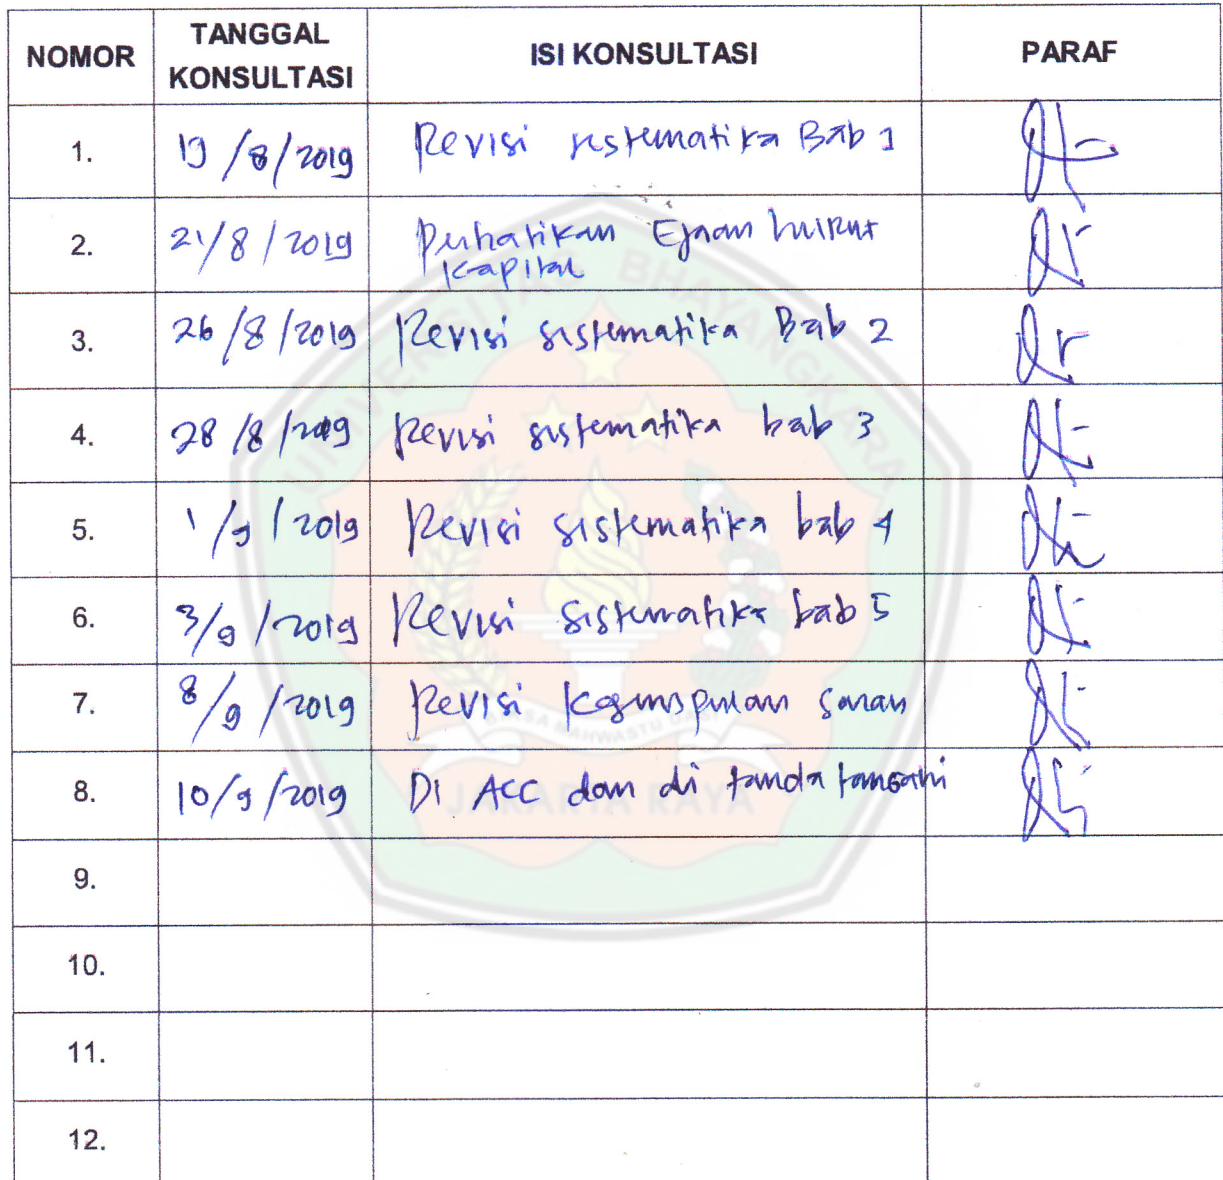 NOMOR TANGGAL KONSULTASI ISI KONSULTASI PARAF
1. 19/8/2019 Revisi sistematika Bab 1
2. 21/8/2019 Perhatikan Ejaan huruf
Kapital
3. 26/8/2019 Revisi sistematika Bab 2
4. 28/8/2019 Revisi sistematika bab 3
5. 1/9/2019 Revisi sistematika bab 4
6. 3/9/2019 Revisi sistematika bab 5
7. 8/9/2019 Revisi Kesimpulan saran
8. 10/9/2019 Di ACC dan di tanda tangani
9.
10.
11.
12.
UNIVERSITAS BHAYANGKARA
JAKARTA RAYA